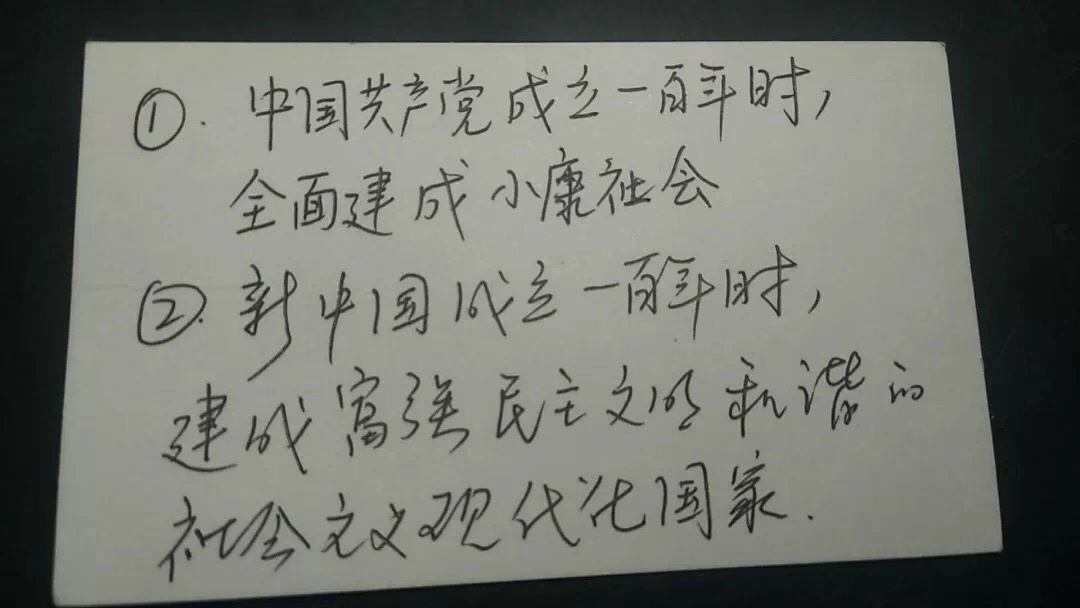 ①. 中国共产党成立一百年时,
全面建成小康社会
②. 新中国成立一百年时,
建成富强民主文明和谐的
社会主义现代化国家.